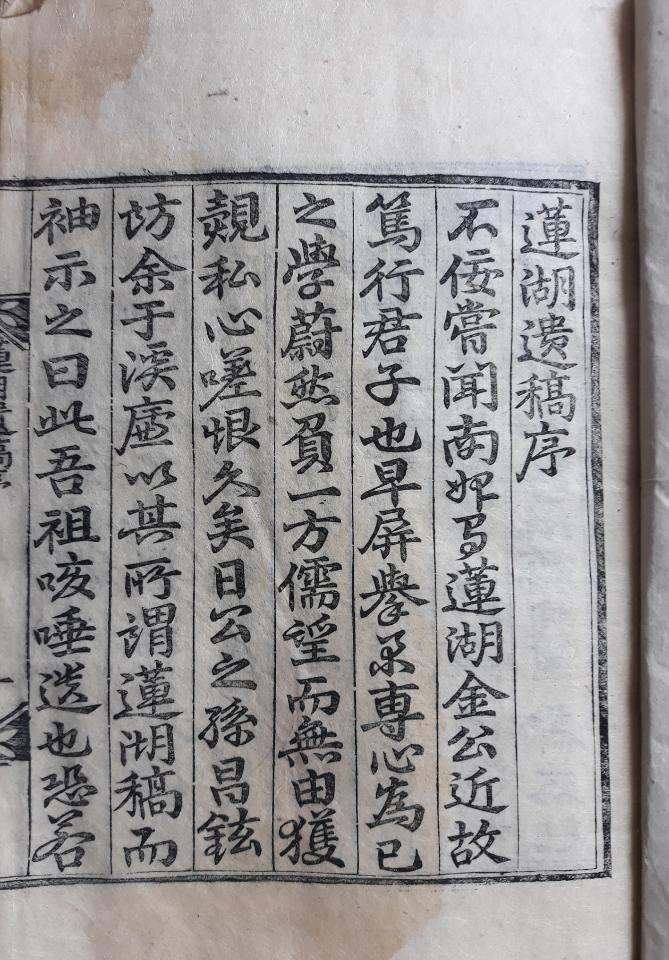 蓮湖遺稿序
不佞嘗聞南州有蓮湖金公近故
篤行君子也早屏擧業專心為己
之學蔚然負一方儒望而無由獲
覿私心嗟恨久矣日公之孫昌鉉
訪余于溪廬以其所謂蓮湖稿而
袖示之曰此吾祖咳唾遺也恐若